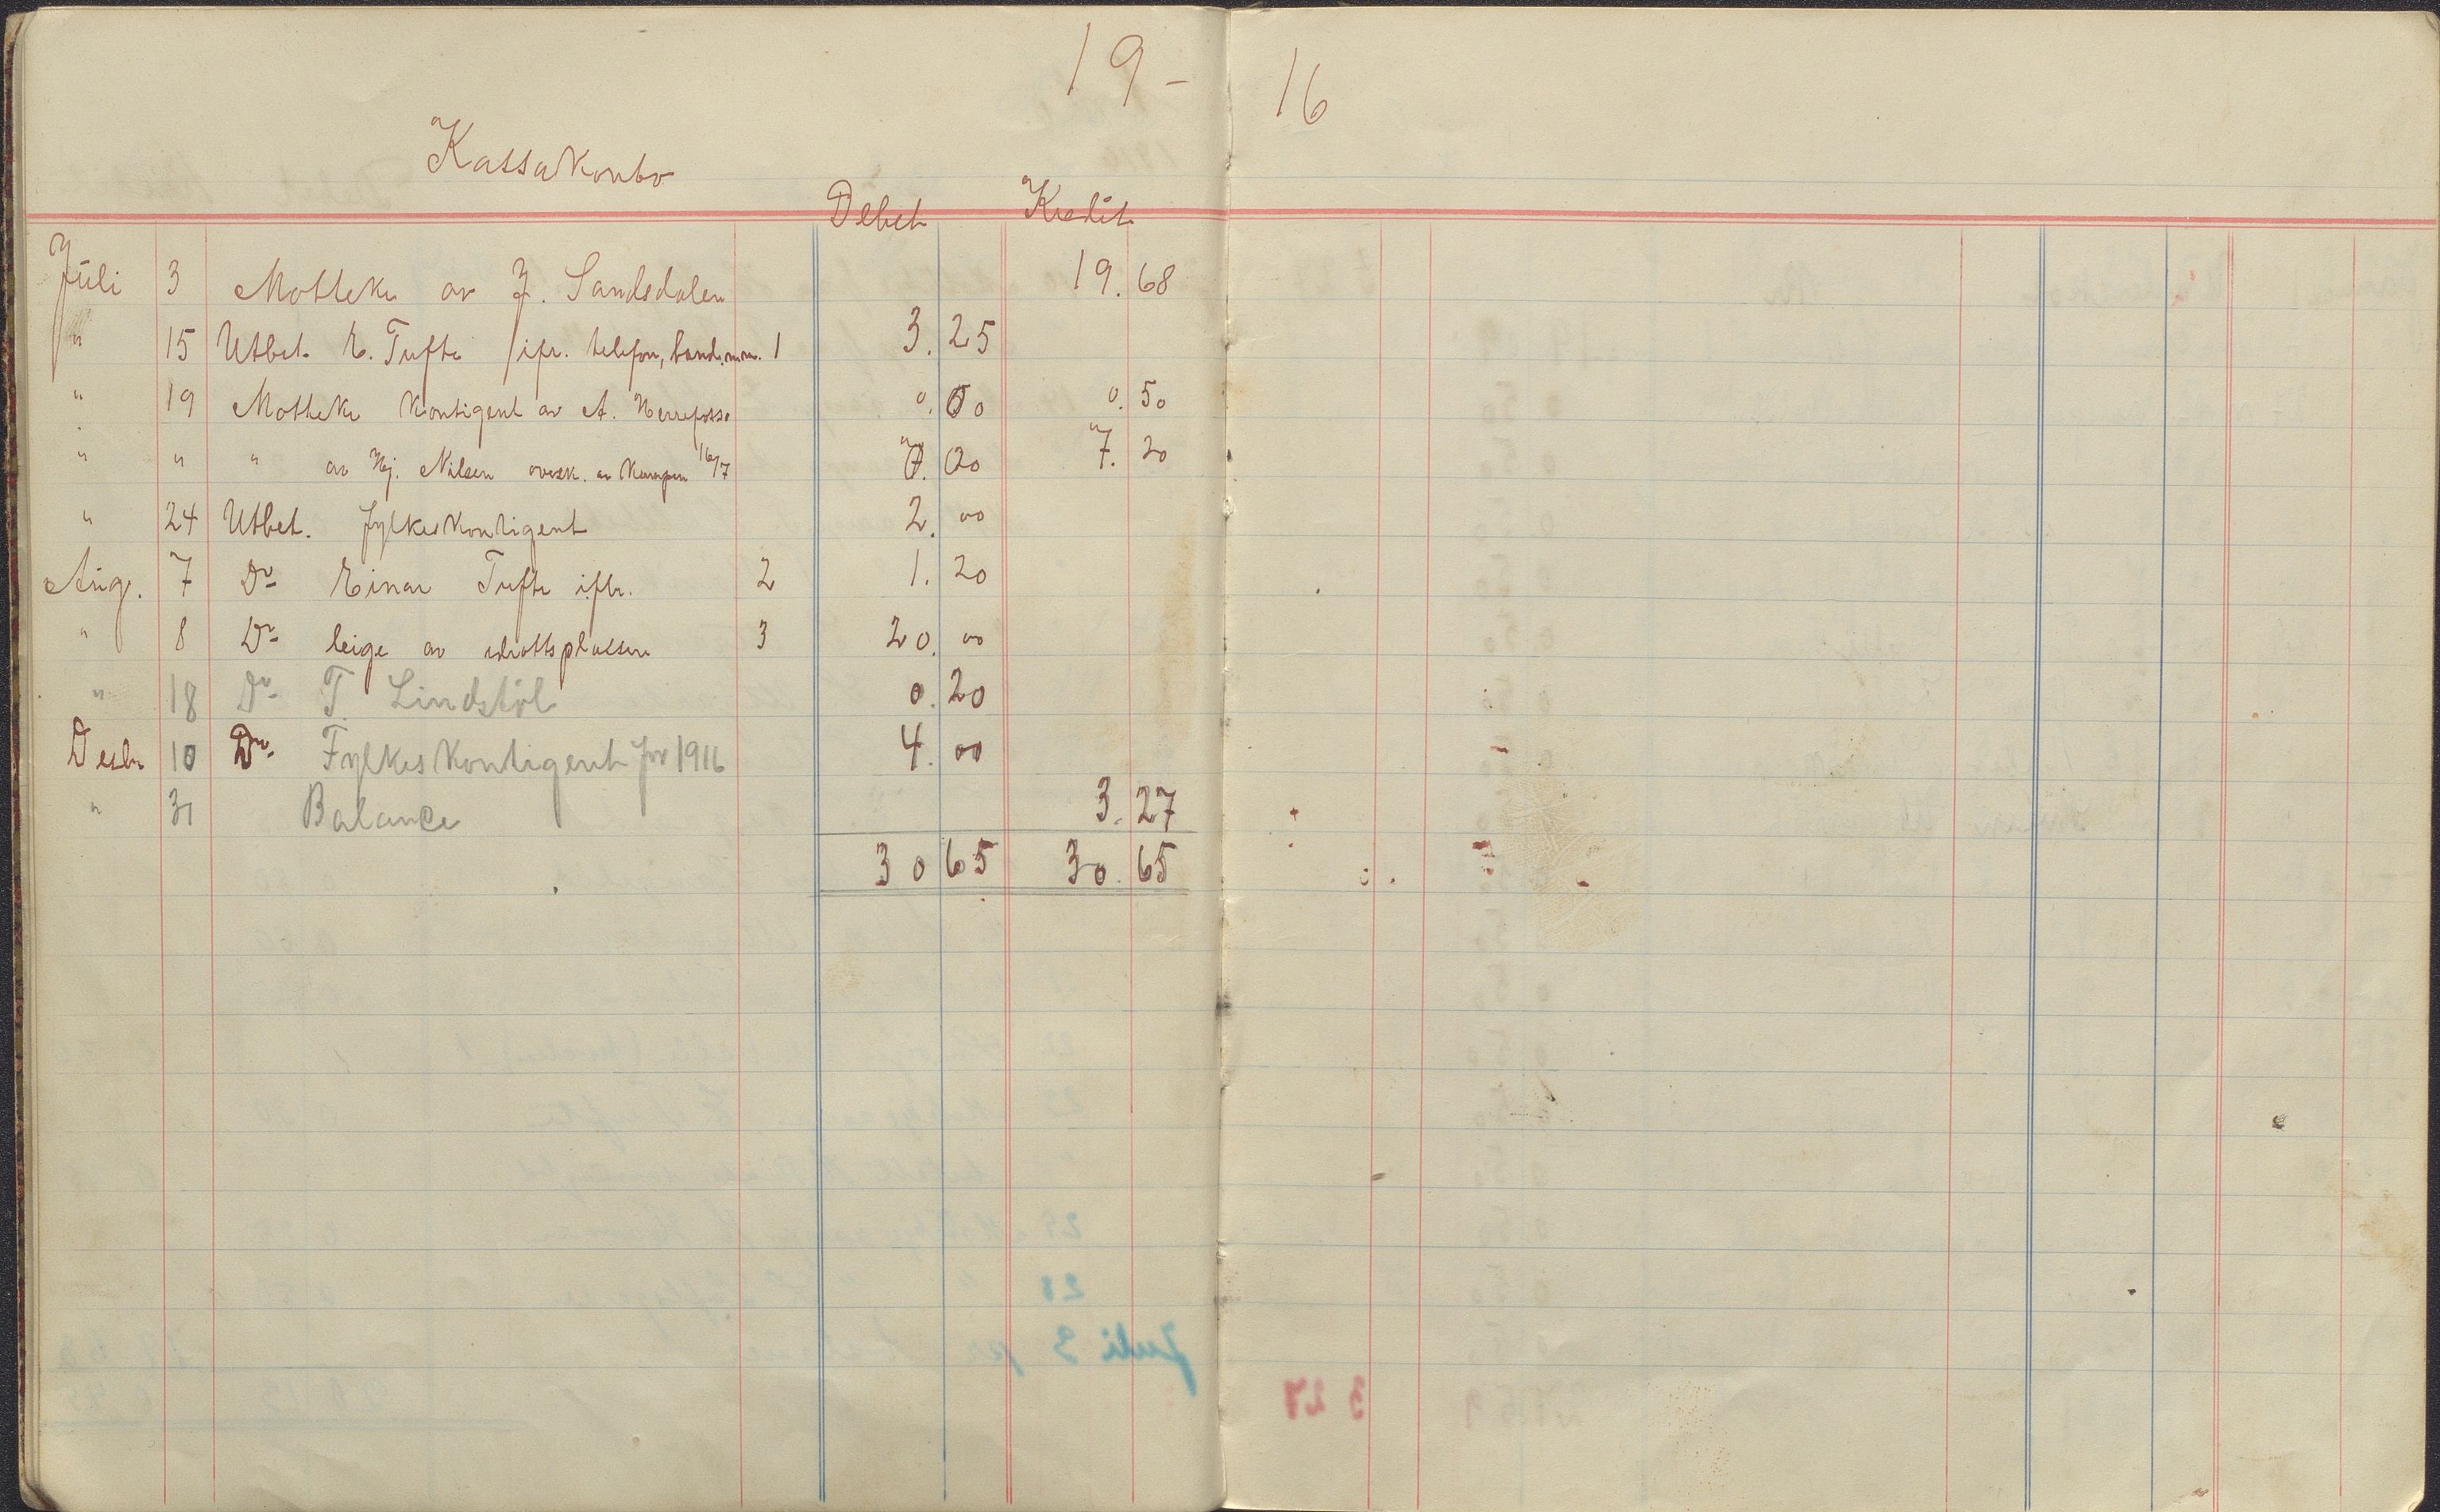 19-16
Kassakonto
Debet Kredit
Juli 3 Motteke av J. Sandsdalen 19.68
" 15 Utbet. E. Tufte ifr. telefon, band. m.m. 1 3.25
" 19 Motteke Kontigent av A. Herrefosse 0.00 0.50
" " " av Hj. Nilsen oversk. av Kampen 16/7 7.20
" 24 Utbet. fylkeskontigent 2.00
Aug. 7 Do Einar Tufte iflr. 2 1.20
" 8 Do leige av idrottsplassen 3 20.00
" 18 Do T. Lindstöl 0.20
Desbr 10 Do Fylkeskontigent for 1916 4.00
" 31 Balance 3.27
30 65 30.65